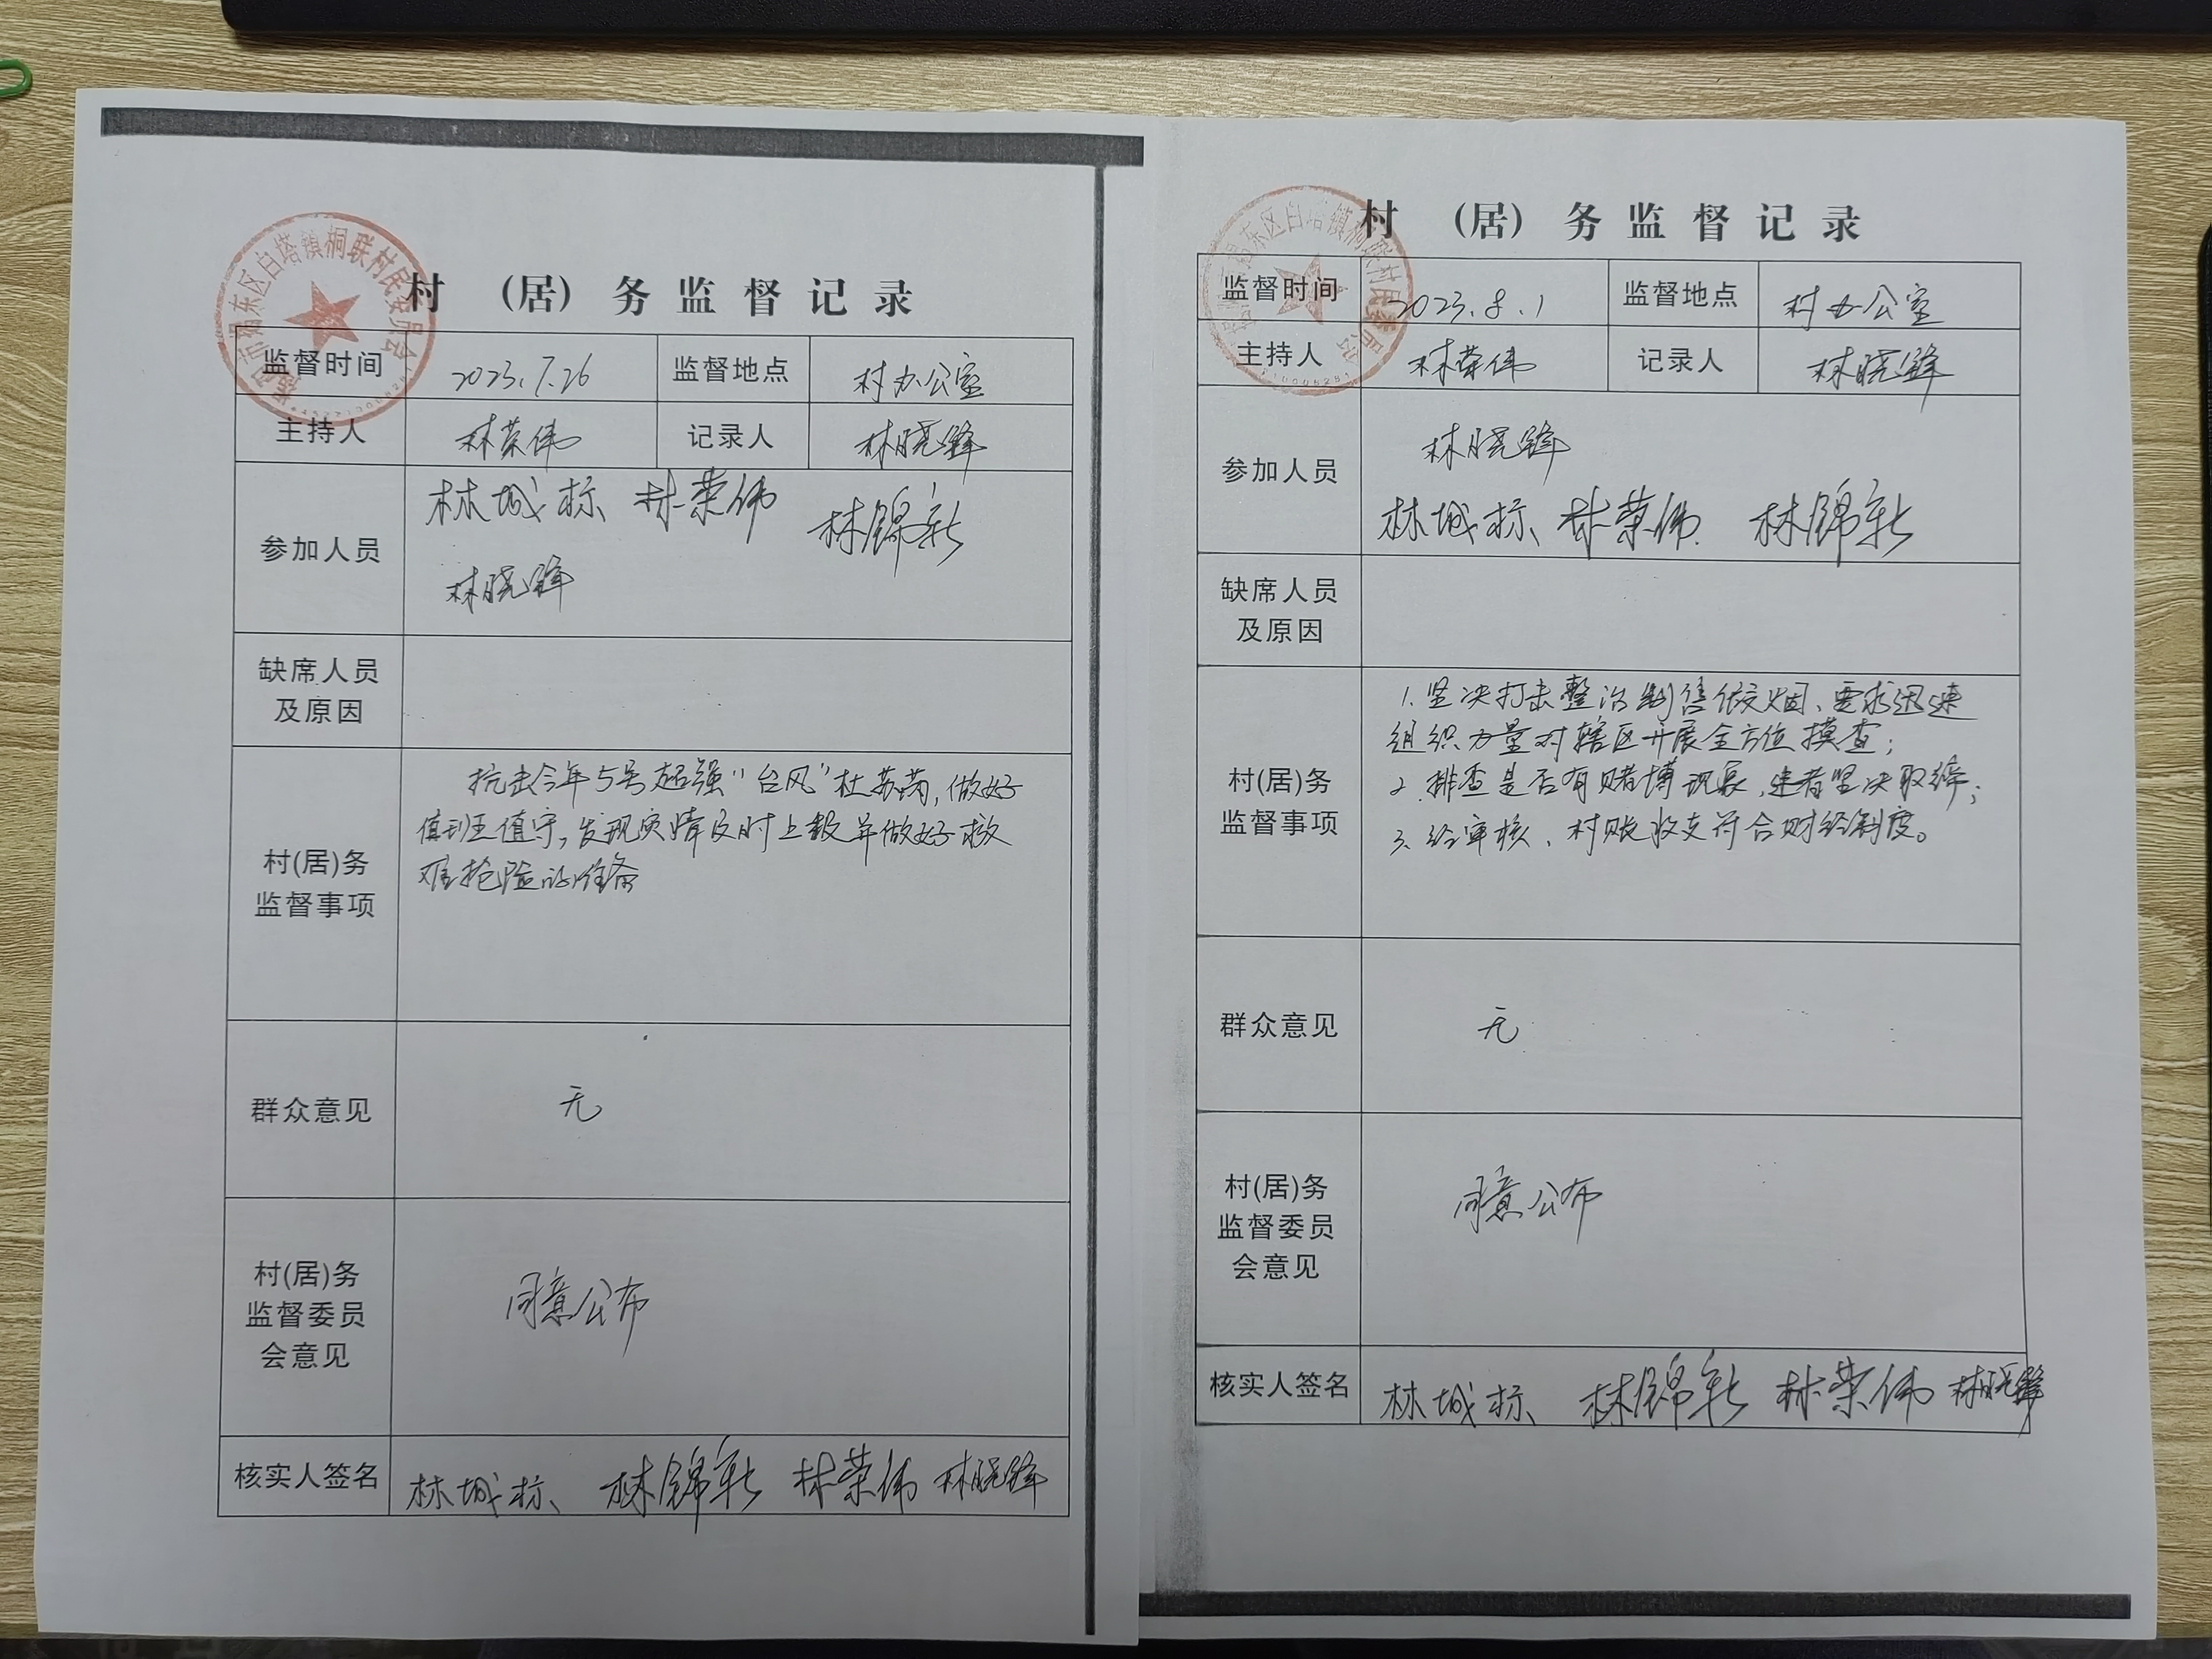 村 （居） 务 监 督 记 录
东区白塔镇桐联村民委员会
监督时间 2023.7.26 监督地点 村办公室
主持人 林荣伟 记录人 林晓锋
参加人员 林城标、林荣伟 林锦新
林晓锋
缺席人员
及原因
村(居)务
监督事项
抗击今年5号超强“台风”杜苏芮,做好
值班值守,发现灾情及时上报并做好救
难抢险的准备
群众意见 无
村(居)务
监督委员
会意见
同意公布
核实人签名 林城标、 林锦新 林荣伟 林晓锋
村 （居） 务 监 督 记 录
东区白塔镇桐联村民委员会
监督时间 2023.8.1 监督地点 村办公室
主持人 林荣伟 记录人 林晓锋
参加人员 林晓锋
林城标、林荣伟 林锦新
缺席人员
及原因
村(居)务
监督事项
1.坚决打击整治制售假烟、要求迅速
组织力量对辖区开展全方位摸查;
2.排查是否有赌博现象,违者坚决取缔;
3、经审核、村账收支符合财经制度。
群众意见 无
村(居)务
监督委员
会意见
同意公布
核实人签名 林城标、 林锦新 林荣伟 林晓锋